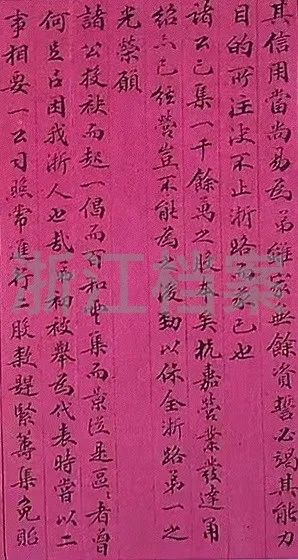 其信用當尚易為弟雖家無餘資誓必竭其能力
目的所注決不止浙路已也
諸公已集一千餘萬之股本矣杭嘉營業發達甬
紹亦已經營豈不能為後勁以保全浙路第一之
光榮願
諸公投袂而起一倡而百和雲集而景從是區區者曾
何足以困我浙人也哉弟被舉為代表時當以二
事相要一公司照常進行一股款趕緊籌集免貽
浙江档案